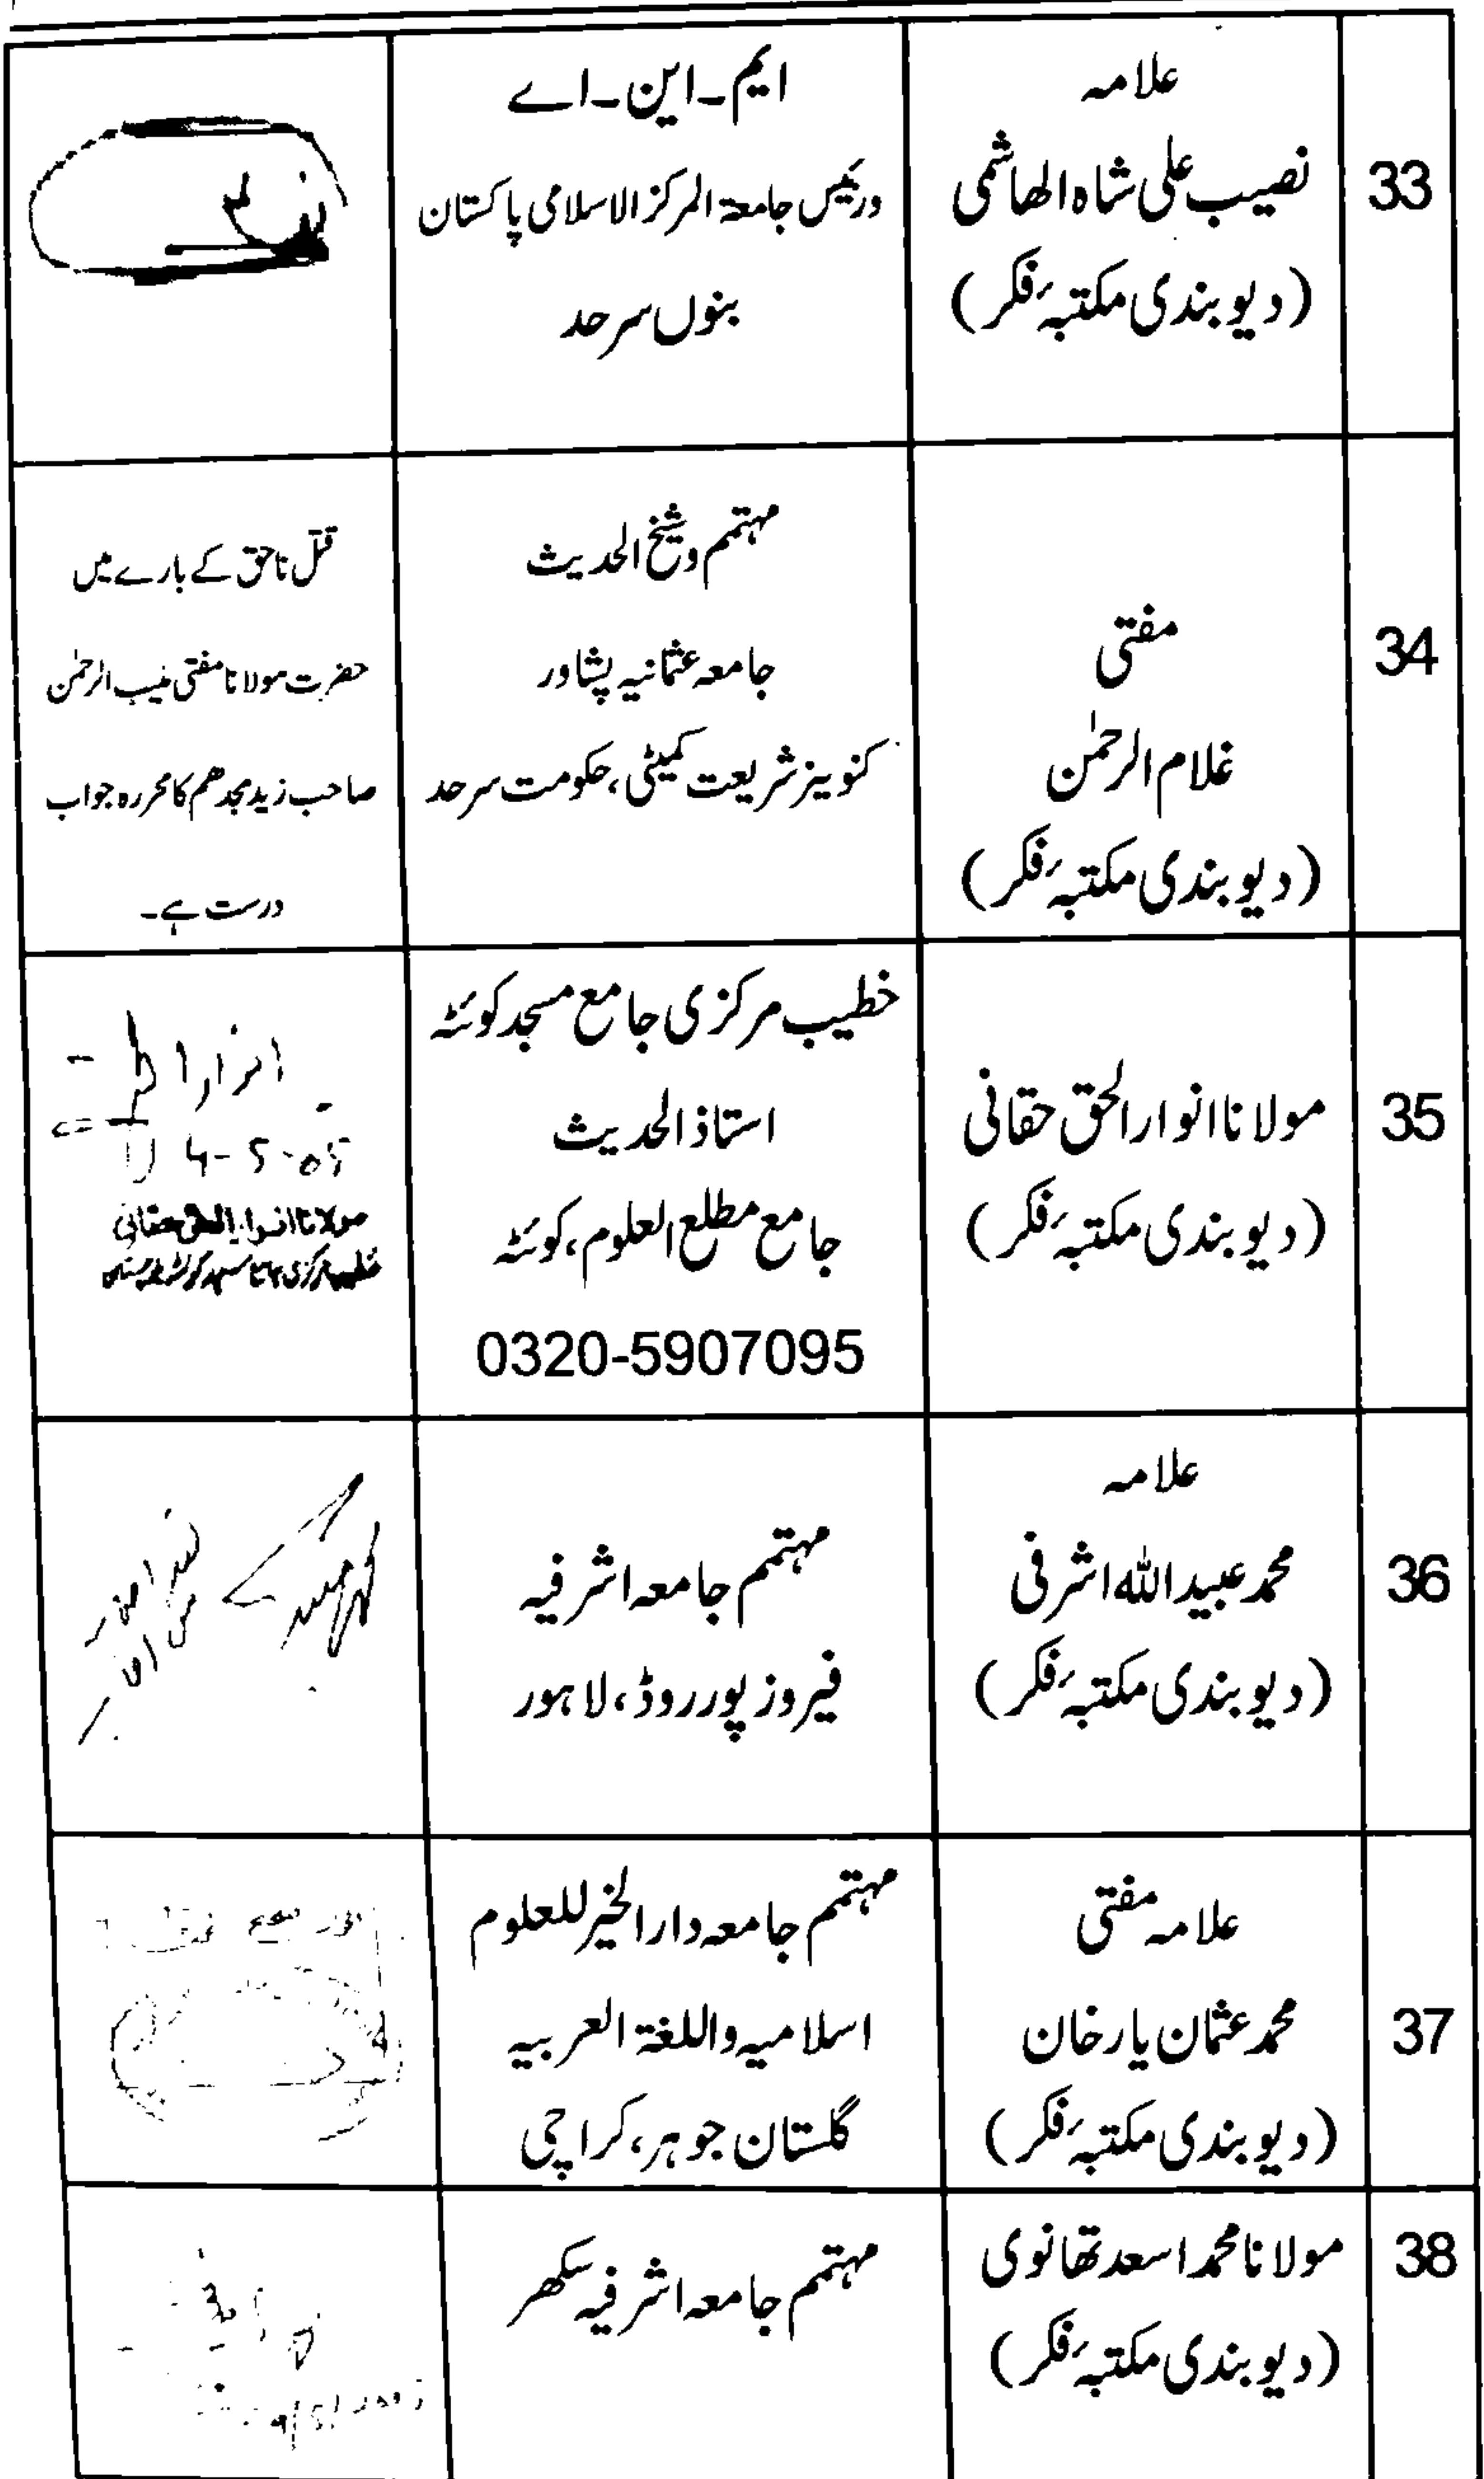 33
علامہ
نصیب علی شاہ الهاشمی
(دیوبندی مکتبۂ فکر)
ایم۔این۔اے
ورئیس جامعۃ المرکز الاسلامی پاکستان
بنوں سرحد
34
مفتی
غلام الرحمٰن
(دیوبندی مکتبۂ فکر)
مہتمم وشیخ الحدیث
جامعہ عثمانیہ پشاور
کنوینر شریعت کمیٹی، حکومت سرحد
قتل ناحق کے بارے میں
حضرت مولانا مفتی منیب الرحمٰن
صاحب زید مجدھم کا محررہ جواب
درست ہے۔
35
مولانا انوار الحق حقانی
(دیوبندی مکتبۂ فکر)
خطیب مرکزی جامع مسجد کوئٹہ
استاذ الحدیث
جامع مطلع العلوم، کوئٹہ
0320-5907095
4-5-05
مولانا انوار الحق حقانی
36
علامہ
محمد عبید اللہ اشرفی
(دیوبندی مکتبۂ فکر)
مہتمم جامعہ اشرفیہ
فیروز پور روڈ، لاہور
37
علامہ مفتی
محمد عثمان یار خان
(دیوبندی مکتبۂ فکر)
مہتمم جامعہ دارالخیر للعلوم
اسلامیہ واللغۃ العربیہ
گلستان جوہر، کراچی
38
مولانا محمد اسعد تھانوی
(دیوبندی مکتبۂ فکر)
مہتمم جامعہ اشرفیہ سکھر